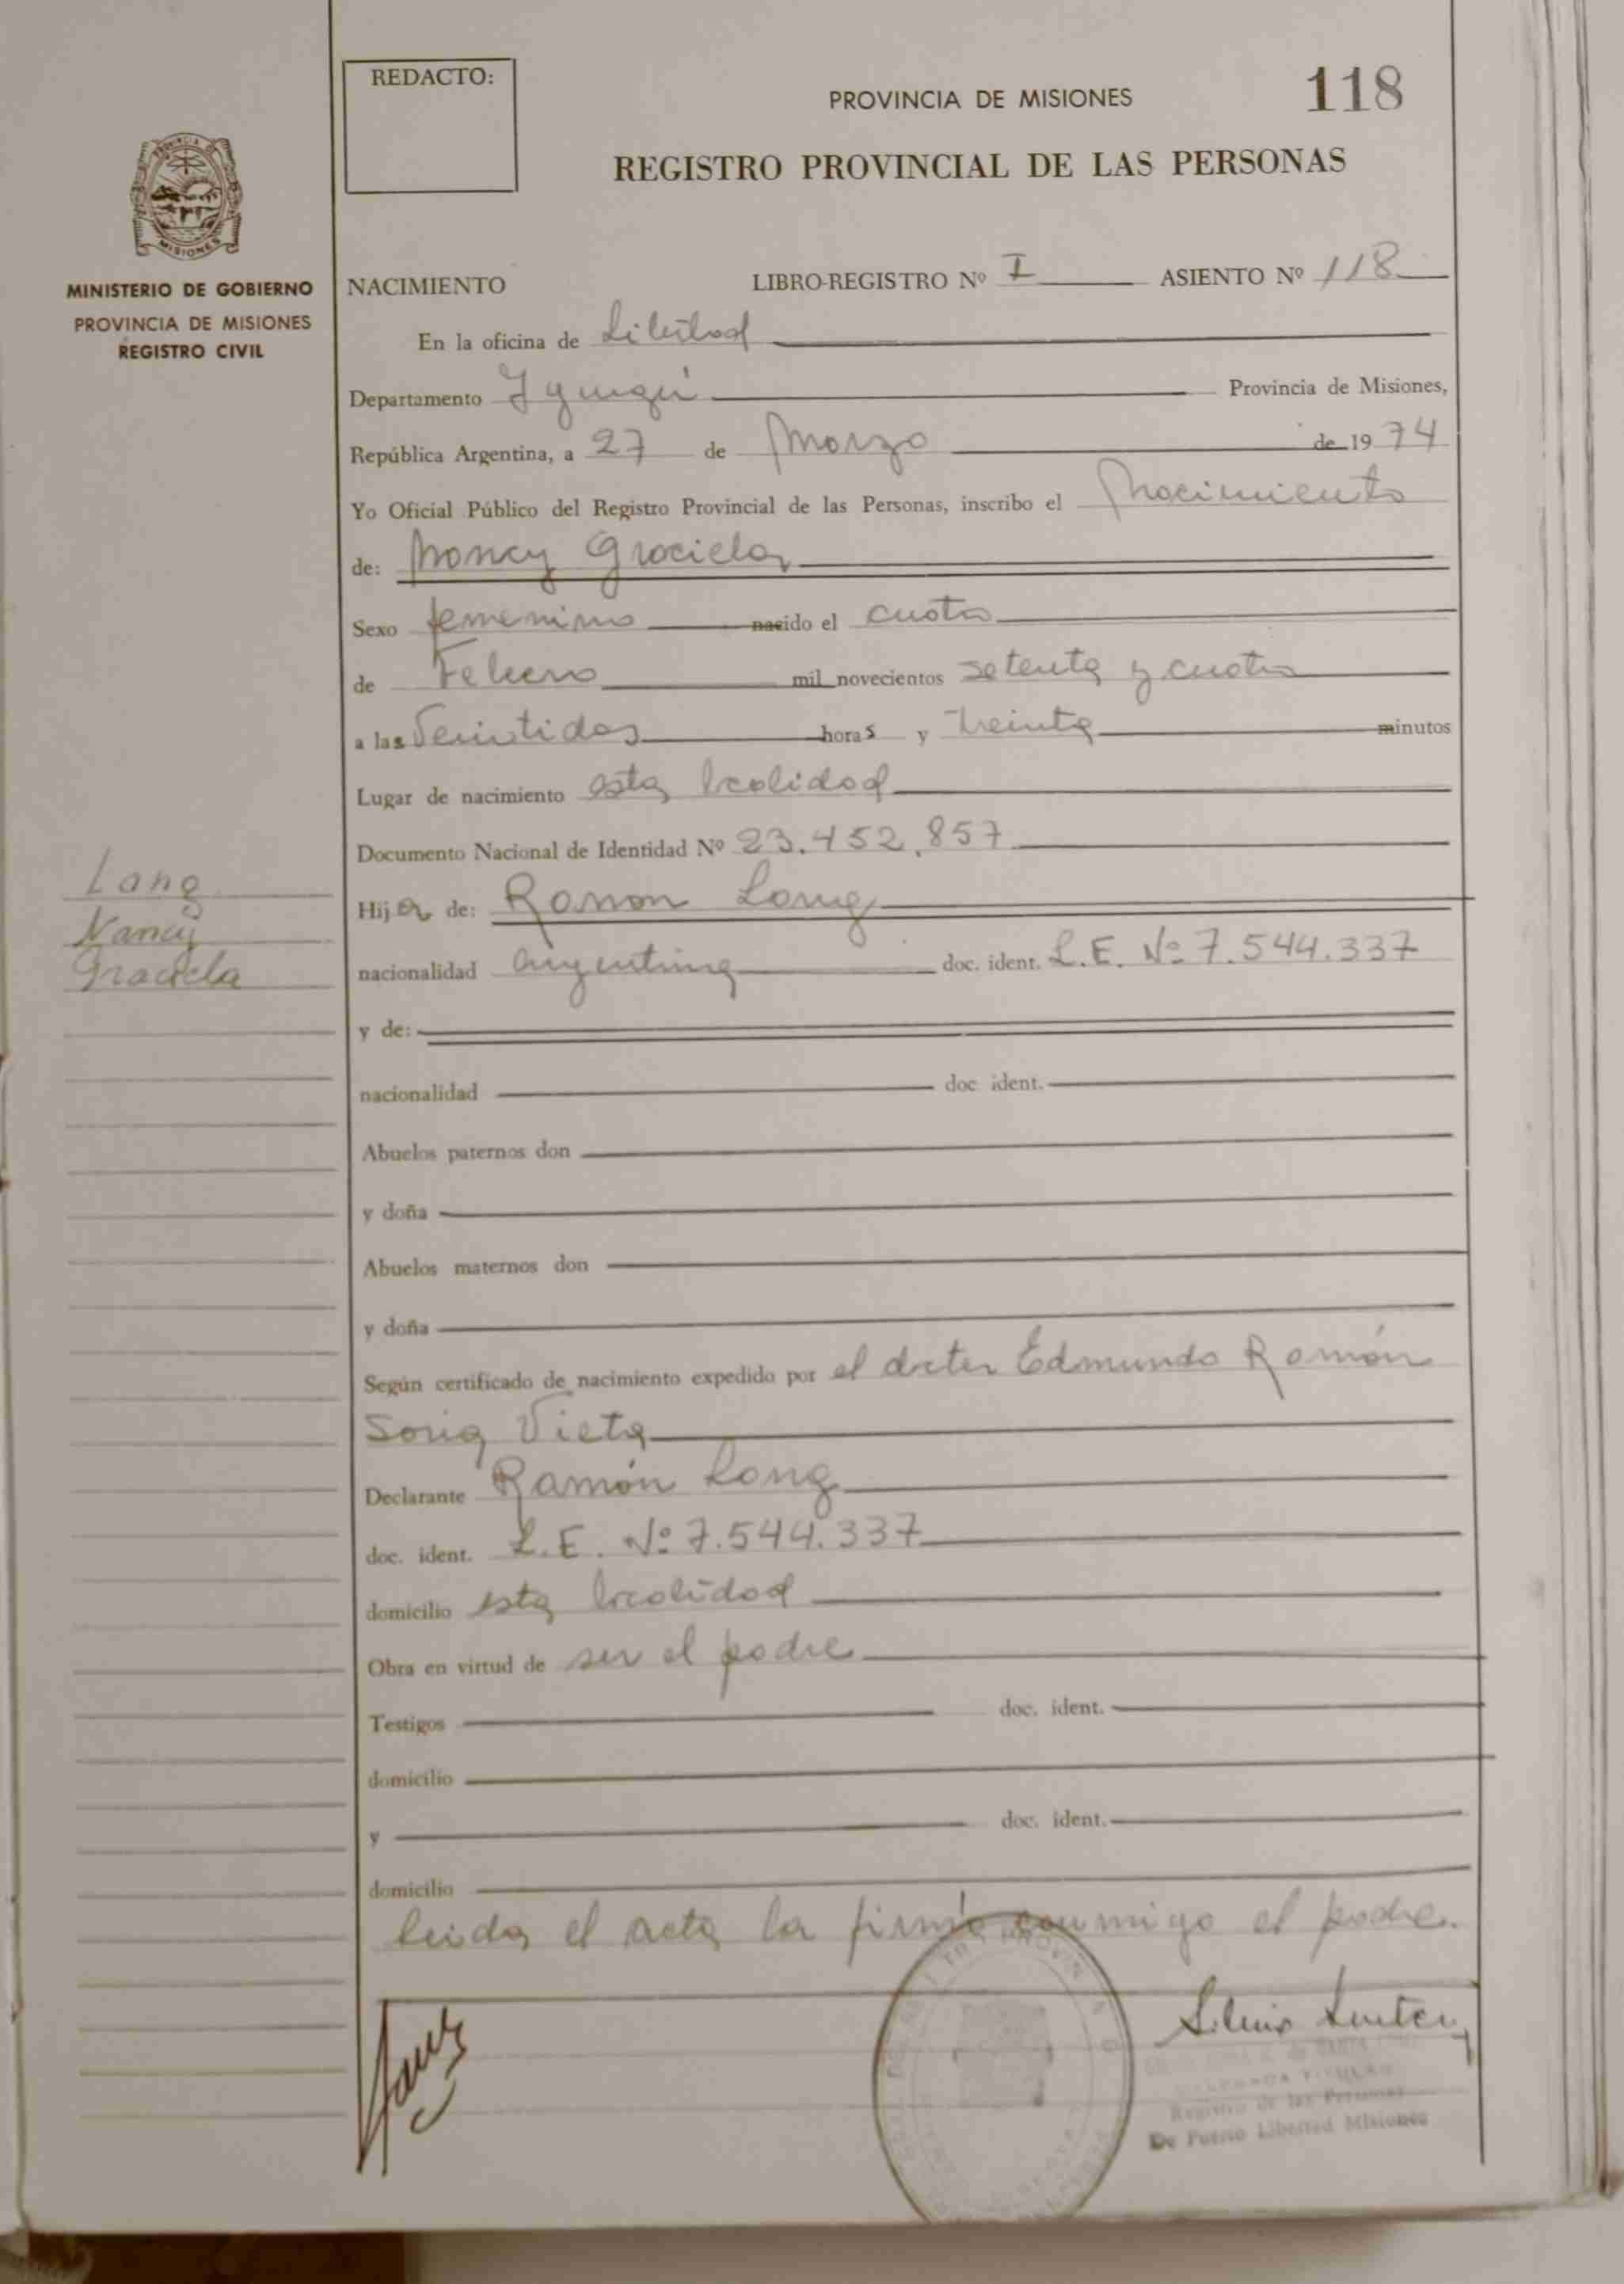 REDACTO:
PROVINCIA DE MISIONES
118
REGISTRO PROVINCIAL DE LAS PERSONAS
MISIONES
MINISTERIO DE GOBIERNO
PROVINCIA DE MISIONES
REGISTRO CIVIL
NACIMIENTO LIBRO-REGISTRO Nº I ASIENTO Nº 118
En la oficina de Libertad
Departamento Iguazú Provincia de Misiones,
República Argentina, a 27 de Marzo de 1974
Yo Oficial Público del Registro Provincial de las Personas, inscribo el Nacimiento
de: Nancy Graciela
Sexo femenino nacido el cuatro
de Febrero mil novecientos setenta y cuatro
a las Veintidos horas y treinta minutos
Lugar de nacimiento esta localidad
Documento Nacional de Identidad Nº 23.452.857
Lang
Nancy
Graciela
Hija de: Ramon Lang
nacionalidad argentina doc. ident. L.E. Nº 7.544.337
y de:
nacionalidad doc ident.
Abuelos paternos don
y doña
Abuelos maternos don
y doña
Según certificado de nacimiento expedido por el doctor Edmundo Ramón
Soria Vieta
Declarante Ramón Lang
doc. ident. L.E. Nº 7.544.337
domicilio esta localidad
Obra en virtud de ser el padre
Testigos doc. ident.
domicilio
y doc. ident.
domicilio
leida el acta la firma conmigo el padre.
Registro de las Personas
De Puerto Libertad Misiones